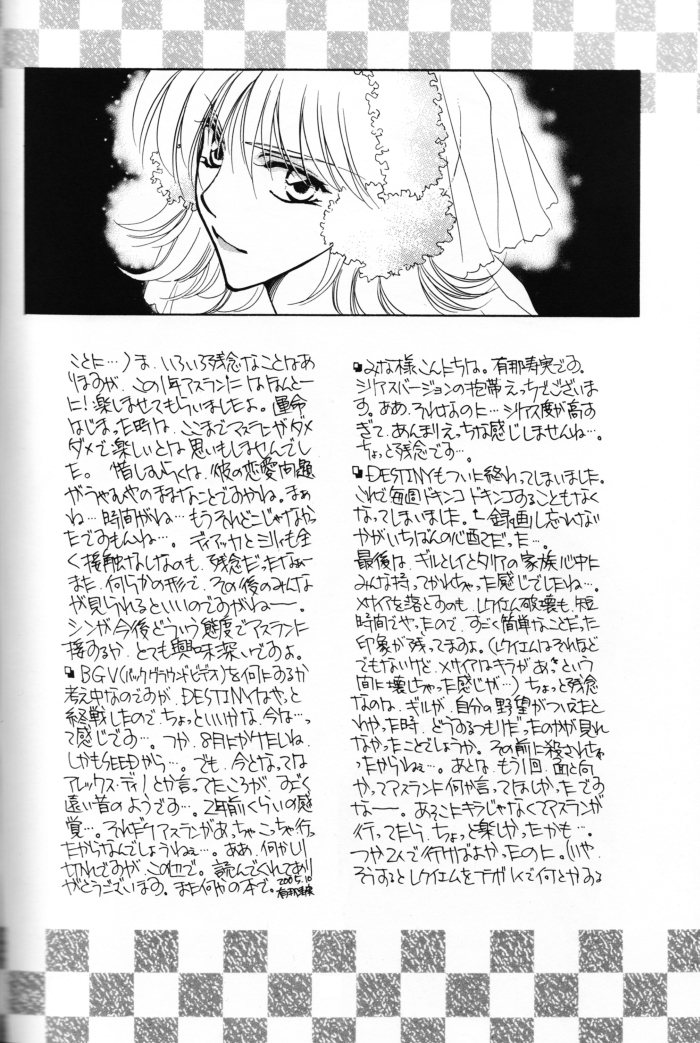 みな様こんにちは。有那寿実です。
シリアスバージョンの抱帯えっちでございま
す。ああ、それなのに…シリアス度が高す
ぎて、あんまりえっちな感じしませんね…。
ちょっと残念です…。
DESTINYもついに終わってしまいました。
これで毎週ドキンコドキンコすることもなく
なってしまいました。←録画し忘れない
かがいちばんの心配でだった…。
最後は、ギルとレイとタリアの家族心中に
みんな持ってかれちゃった感じでしたね…。
メサイアを落とすのも、レクイエム破壊も、短
時間でやったので、すごく簡単なことだった
印象が残ってますよ。（レクイエムはそれほど
でもないけど、メサイアはキラがあっという
間に壊しちゃった感じが…）ちょっと残念
なのは、ギルが、自分の野望がついえたと
わかった時、どうするつもりだったのかが見れ
なかったことでしょうか。その前に殺されちゃ
ったからねぇ…。あとは、もう1回、面と向
かってアスランに何か言ってほしかったです
なー。あそこにキラじゃなくてアスランが
行ってたら、ちょっと楽しかったかも…。
つか2人で行けばよかったのに。（いや、
そうするとレクイエムをフラガ1人で何とかする
ことに…）ま、いろいろ残念なことはあ
りますが、この1年アスランにはほんとー
に！楽しませてもらいましたよ。運命
はじまった時は、ここまでアスランがダメ
ダメで楽しいとは思いもしませんでし
た。惜しむらくは、彼の恋愛問題
がうやむやのままなことですかね。まぁ
ね…時間がね…もうそれどこじゃなかっ
たですもんね…。ディアッカとミリィも全
く接触なしなのも、残念だったなぁー
また、何らかの形で、その後のみんな
が見られるといいのですがねー。
シンが今後どういう態度でアスランに
接するか、とても興味深いですよ。
BGV（バックグラウンドビデオ）を何にするか
考え中なのですが、DESTINYはやっと
終戦したので、ちょっといいかな、今は…っ
て感じです…。つか、8月にかけたしね、
しかもSEEDから…。でも、今となっては
アレックス・ディノとか言ってたころが、すごく
遠い昔のようです…。2年前くらいの感
覚…。それだけアスランがあっちゃこっちゃ行っ
たからなんでしょうねぇ…。ああ、何かしり
切れですが、この辺で。読んでくれてあり
がとうございます。また何かの本で。2005.10
有那寿実